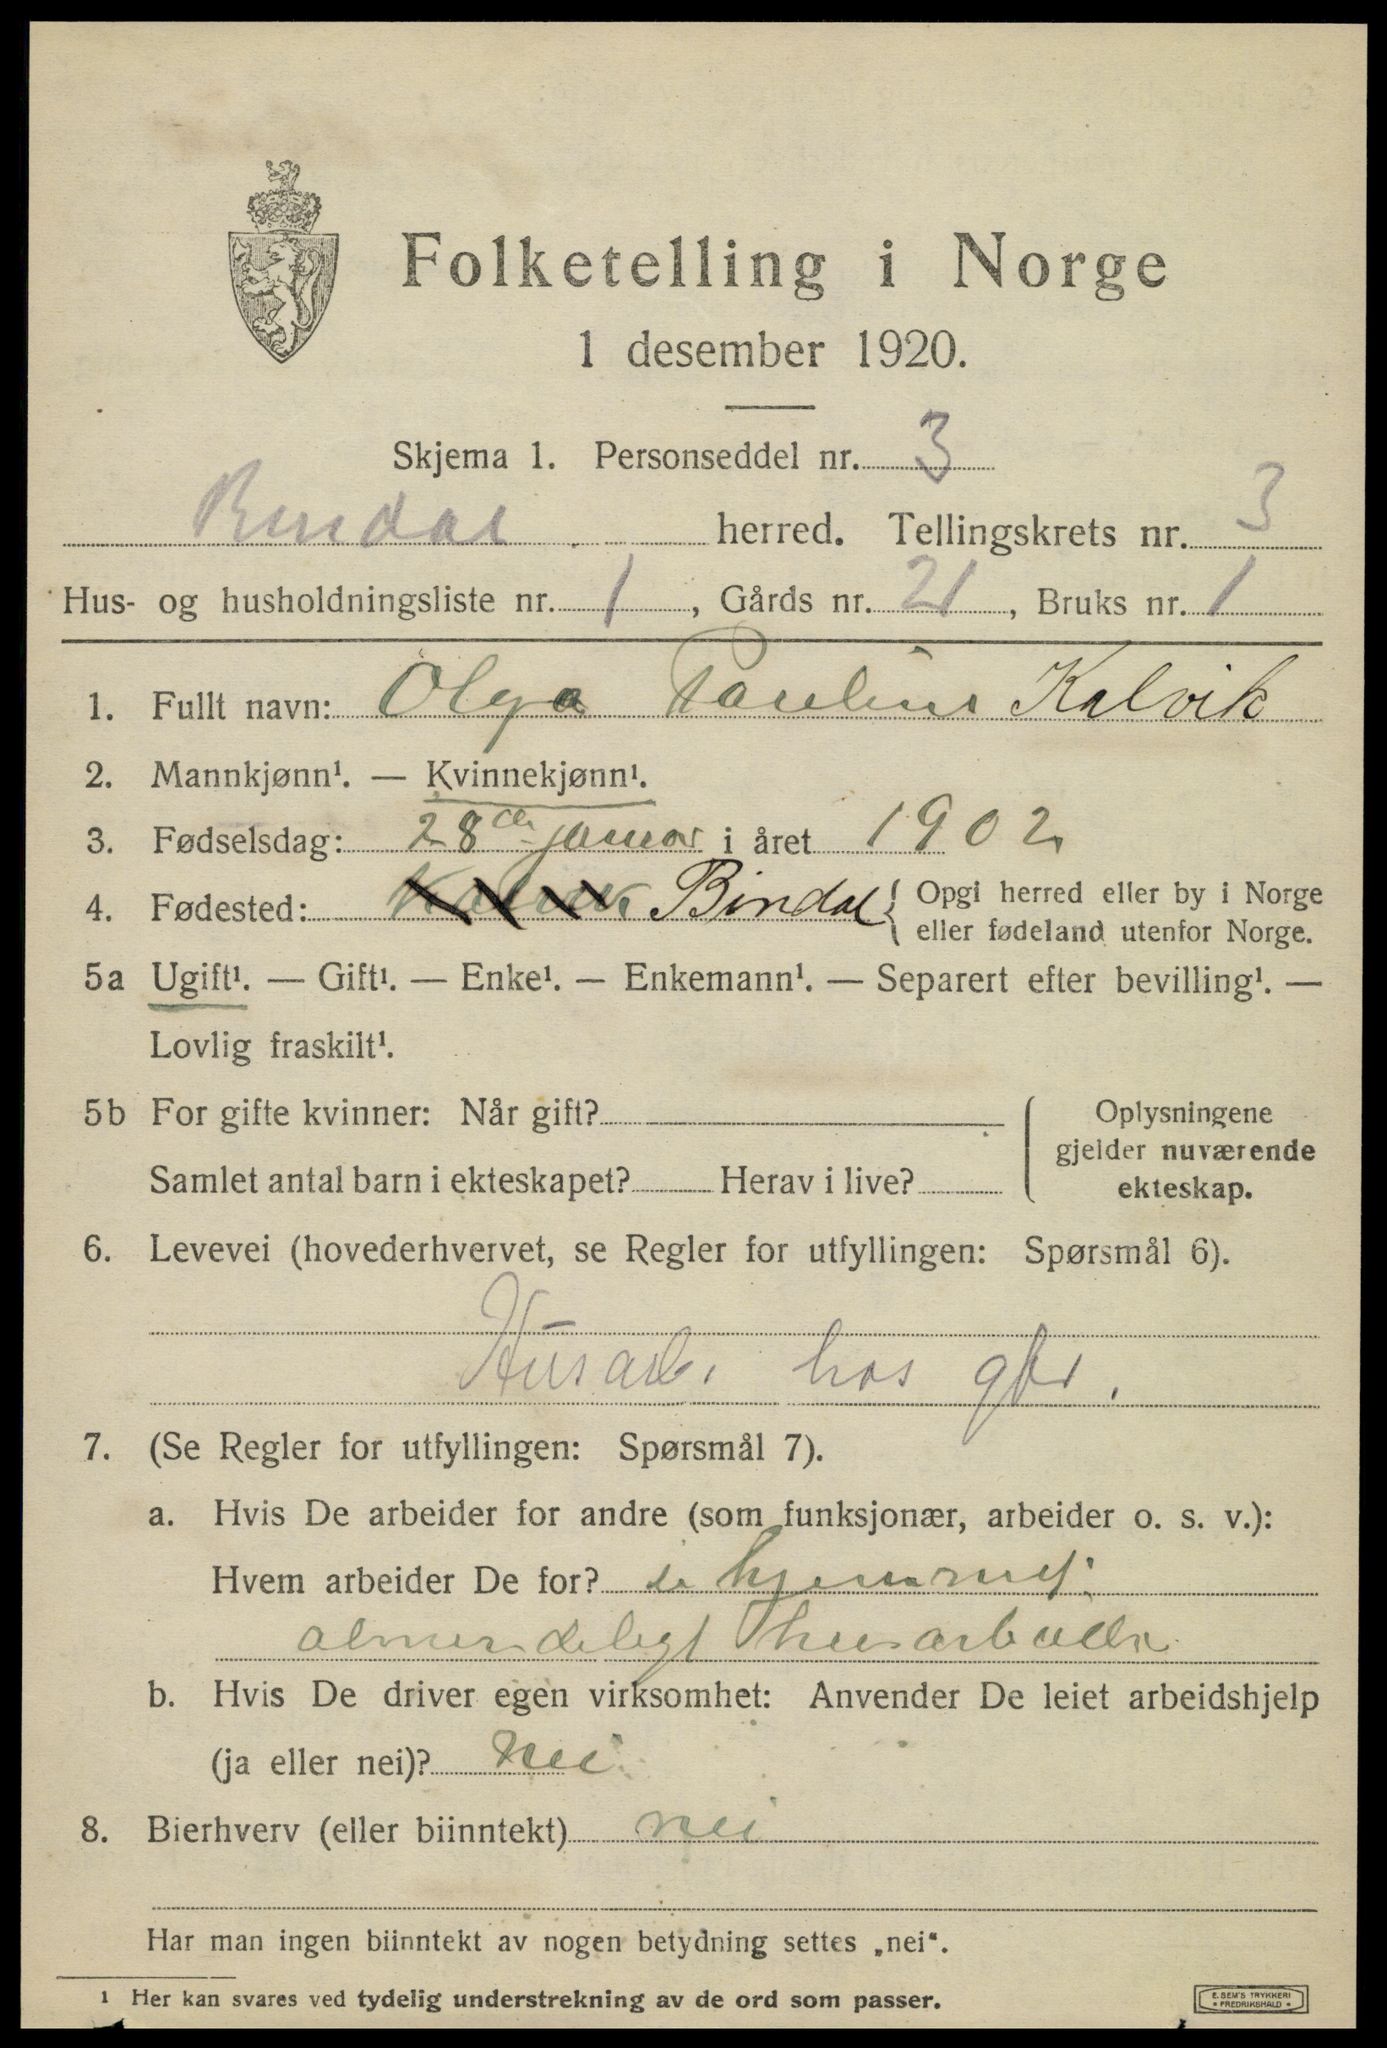 Folketelling i Norge
1 desember 1920.
Skjema 1. Personseddel nr. 3
Bindal herred. Tellingskrets nr. 3
Hus- og husholdningsliste nr. 1, Gårds nr. 21, Bruks nr. 1
1. Fullt navn: Olga Pauline Kalvik
2. Mannkjønn¹. — Kvinnekjønn¹.
3. Fødselsdag: 28de januar i året 1902
4. Fødested: Kalvik Bindal { Opgi herred eller by i Norge
eller fødeland utenfor Norge.
5a Ugift¹. — Gift¹. — Enke¹. — Enkemann¹. — Separert efter bevilling¹. —
Lovlig fraskilt¹.
5b For gifte kvinner: Når gift?
Samlet antal barn i ekteskapet? Herav i live?
Oplysningene
gjelder nuværende
ekteskap.
6. Levevei (hovederhvervet, se Regler for utfyllingen: Spørsmål 6).
Husarb. hos gbr.
7. (Se Regler for utfyllingen: Spørsmål 7).
a. Hvis De arbeider for andre (som funksjonær, arbeider o. s. v.):
Hvem arbeider De for? i hjemmet
almindeligt husarbeide
b. Hvis De driver egen virksomhet: Anvender De leiet arbeidshjelp
(ja eller nei)? Nei
8. Bierhverv (eller biinntekt) nei
Har man ingen biinntekt av nogen betydning settes „nei“.
¹ Her kan svares ved tydelig understrekning av de ord som passer.
E. SEM'S TRYKKERI
FREDRIKSHALD